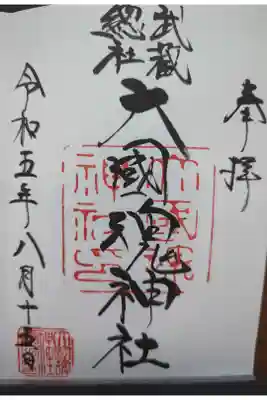 奉拝
武蔵
總社
大國魂神社
令和五年八月十五日